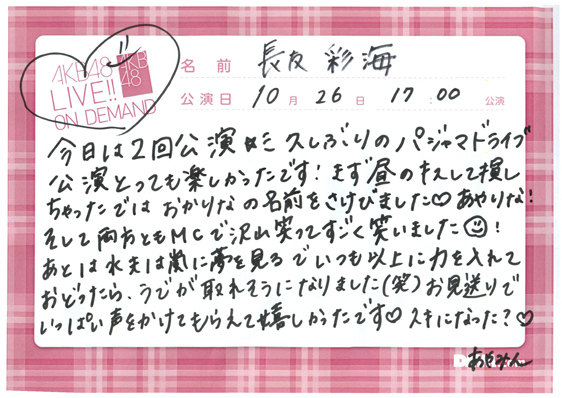 AKB48
LIVE!!
ON DEMAND
AKB
48
名前 長友 彩海
公演日 10月 26日 17:00 公演
今日は2回公演 久しぶりのパジャマドライブ
公演とっても楽しかったです! まず昼のキスして損し
ちゃったでは おかりなの名前をさけびました♡ あやりな!
そして両方ともMCで沢山笑ってすごく笑いました☺!
あとは水夫は嵐に夢を見るでいつも以上に力を入れて
おどったら、うでが取れそうになりました(笑) お見送りで
いっぱい声をかけてもらえて嬉しかったです♡ スキになった?♡
あやみん